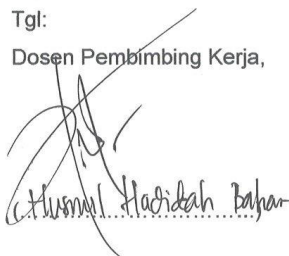 Tgl:
Dosen Pembimbing Kerja,
(Husnul Hadidah Bahar